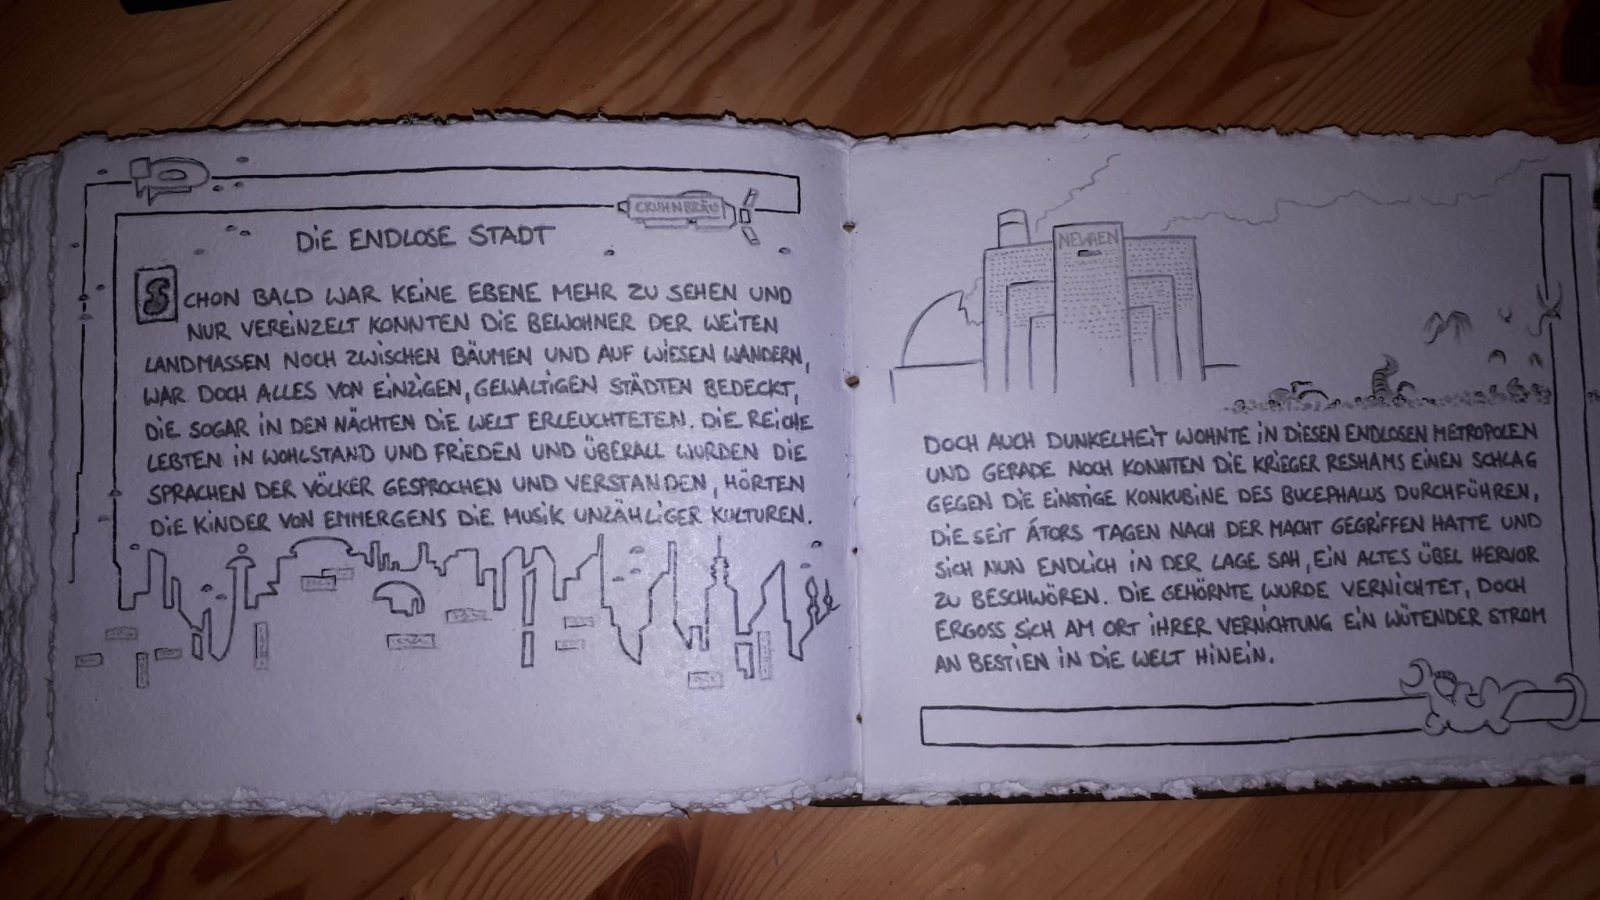 CRUHNBRÄU
DIE ENDLOSE STADT
SCHON BALD WAR KEINE EBENE MEHR ZU SEHEN UND
NUR VEREINZELT KONNTEN DIE BEWOHNER DER WEITEN
LANDMASSEN NOCH ZWISCHEN BÄUMEN UND AUF WIESEN WANDERN,
WAR DOCH ALLES VON EINZIGEN, GEWALTIGEN STÄDTEN BEDECKT,
DIE SOGAR IN DEN NÄCHTEN DIE WELT ERLEUCHTETEN. DIE REICHE
LEBTEN IN WOHLSTAND UND FRIEDEN UND ÜBERALL WURDEN DIE
SPRACHEN DER VÖLKER GESPROCHEN UND VERSTANDEN, HÖRTEN
DIE KINDER VON EMMERGENS DIE MUSIK UNZÄHLIGER KULTUREN.
DOCH AUCH DUNKELHEIT WOHNTE IN DIESEN ENDLOSEN METROPOLEN
UND GERADE NOCH KONNTEN DIE KRIEGER RESHAMS EINEN SCHLAG
GEGEN DIE EINSTIGE KONKUBINE DES BUCEPHALUS DURCHFÜHREN,
DIE SEIT ÁTORS TAGEN NACH DER MACHT GEGRIFFEN HATTE UND
SICH NUN ENDLICH IN DER LAGE SAH, EIN ALTES ÜBEL HERVOR
ZU BESCHWÖREN. DIE GEHÖRNTE WURDE VERNICHTET, DOCH
ERGOSS SICH AM ORT IHRER VERNICHTUNG EIN WÜTENDER STROM
AN BESTIEN IN DIE WELT HINEIN.